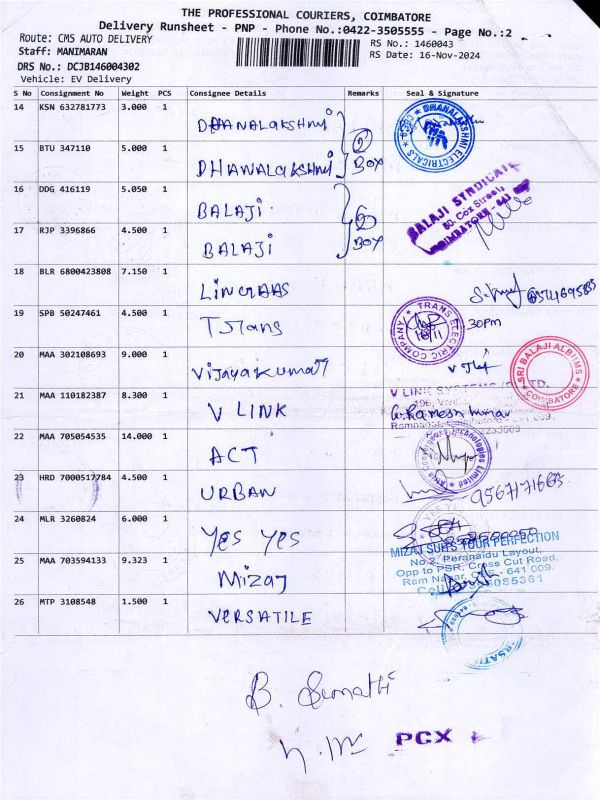 THE PROFESSIONAL COURIERS, COIMBATORE
Delivery Runsheet - PNP - Phone No.:0422-3505555 - Page No.:2
Route: CMS AUTO DELIVERY
RS No.: 1460043
Staff: MANIMARAN
RS Date: 16-Nov-2024
DRS No.: DCJB146004302
Vehicle: EV Delivery
S No Consignment No Weight PCS Consignee Details Remarks Seal & Signature
14 KSN 632781773 3.000 1 DHANALAKSHMI
DHANALAKSHMI ELECTRICALS
15 BTU 347110 5.000 1 DHANALAKSHMI ② BOX
16 DDG 416119 5.050 1 BALAJI
BALAJI SYNDICATE
17 RJP 3396866 4.500 1 BALAJI ② BOX
18 BLR 6800423808 7.150 1
19 SPB 50247461 4.500 1 Trans
TRANS ELECTRIC COMPANY
16/11
30PM
20 MAA 302108693 9.000 1 Vijayakumar
SRI BALAJI ALBUMS
COIMBATORE
21 MAA 110182387 8.300 1 V LINK
22 MAA 705054535 14.000 1 ACT
23 HRD 7000517784 4.500 1 URBAN
24 MLR 3260824 6.000 1 Yes Yes
25 MAA 703594133 9.323 1 Mizaj
MIZAJ SUITS YOUR PERFECTION
No.2, Peranaidu Layout,
Opp to PSR, Cross Cut Road,
Ram Nagar, CBE - 641 009.
26 MTP 3108548 1.500 1 VERSATILE
B. Sumathi
PCX